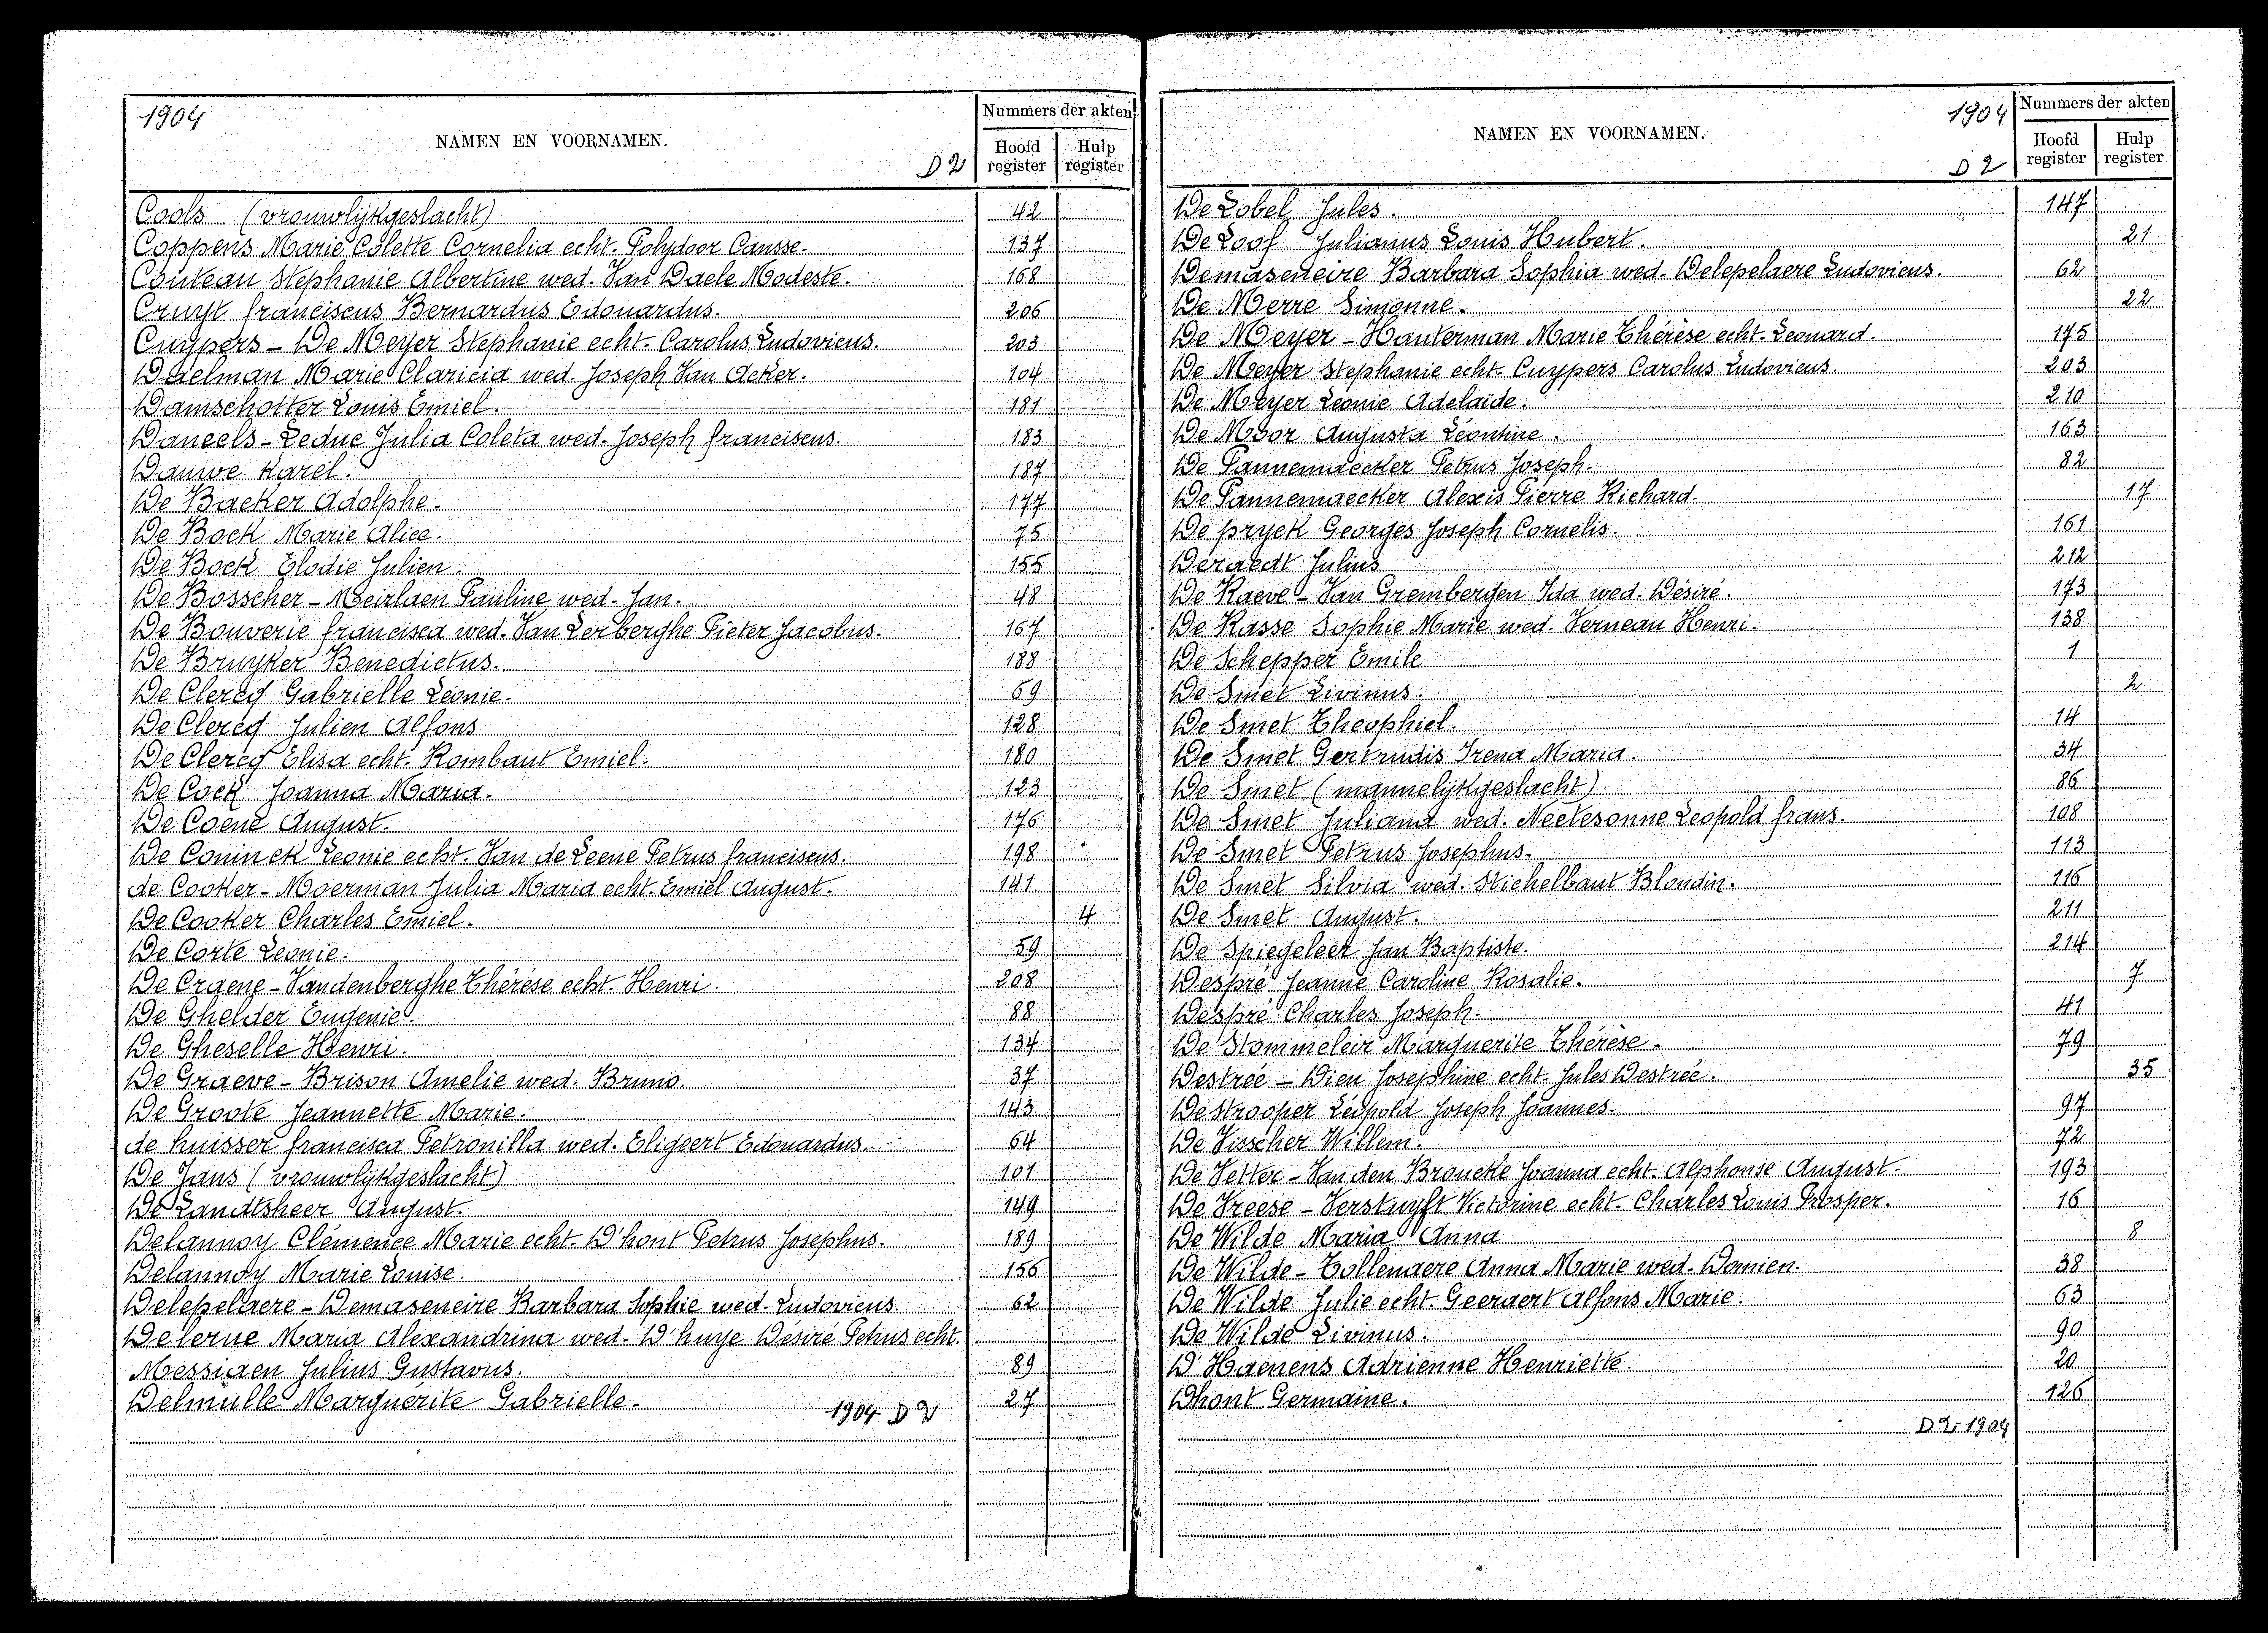 1904
NAMEN EN VOORNAMEN.
D 2
Nummers der akten
Hoofd register
Hulp register
Cools (vrouwlijkgeslacht) 42
Coppens Marie Colette Cornelia echt. Polydoor Causse. 137
Couteau Stephanie Albertine wed. Van Daele Modeste. 168
Cruyt franciscus Bernardus Edouardus. 206
Cuypers - De Meyer Stephanie echt. Carolus Ludovicus. 203
Daelman Marie Claricia wed. Joseph Van Acker. 104
Damschotter Louis Emiel. 181
Daneels - Leduc Julia Coleta wed. Joseph franciscus. 183
Dauwe Karel. 187
De Backer Adolphe. 177
De Bock Marie Alice. 75
De Bock Elodie Julien. 155
De Bosscher - Meirlaen Pauline wed. Jan. 48
De Bouverie francisca wed. Van Lerberghe Pieter Jacobus. 167
De Bruyker Benedictus. 188
De Clercq Gabrielle Léonie. 69
De Clercq Julien Alfons 128
De Clercq Elisa echt. Rombaut Emiel. 180
De Cock Joanna Maria. 123
De Coene August. 176
De Coninck Leonie echt. Van de Leene Petrus franciscus. 198
de Cooker - Moerman Julia Maria echt. Emiel August. 141
De Cooker Charles Emiel. 4
De Corte Leonie. 59
De Craene - Vandenberghe Thérése echt. Henri. 208
De Ghelder Eugenie. 88
De Gheselle Henri. 134
De Graeve - Brison Amelie wed. Bruno. 37
De Groote Jeannette Marie. 143
de huisser francisca Petronilla wed. Eligeert Edouardus. 64
De Jans (vrouwlijkgeslacht) 101
De Landtsheer August. 149
Delannoy Clémence Marie echt. D'hont Petrus Josephus. 189
Delannoy Marie Louise. 156
Delepelaere - Demaseneire Barbara Sophie wed. Ludovicus 62
Delerue Maria Alexandrina wed. D'huye Désiré Petrus echt.
Messiaen Julius Gustavus. 89
Delmulle Marguerite Gabrielle. 27
1904 D 2
1904
NAMEN EN VOORNAMEN.
D 2
Nummers der akten
Hoofd register
Hulp register
De Lobel Jules. 147
De Loof Julianus Louis Hubert. 21
Demaseneire Barbara Sophia wed. Delepelaere Ludovicus. 62
De Merre Simonne. 22
De Meyer - Hauterman Marie Thérèse echt. Leonard. 175
De Meyer Stephanie echt. Cuypers Carolus Ludovicus. 203
De Meyer Leonie Adelaide. 210
De Moor Augusta Léontine. 163
De Pannemaecker Petrus Joseph. 82
De Pannemaecker Alexis Pierre Richard. 17
De pryck Georges Joseph Cornelis. 161
Deraedt Julius 212
De Raeve - Van Grembergen Ida wed. Désiré. 173
De Rasse Sophie Marie wed. Verneau Henri. 138
De Schepper Emile 1
De Smet Livinus. 2
De Smet Theophiel. 14
De Smet Gertrudis Irena Maria. 34
De Smet (mannelijkgeslacht) 86
De Smet Juliana wed. Neetesonne Leopold frans. 108
De Smet Petrus Josephus. 113
De Smet Silvia wed. Stichelbaut Blondin. 116
De Smet August. 211
De Spiegeleer Jan Baptiste. 214
Despré Jeanne Caroline Rosalie. 7
Despré Charles Joseph. 41
De Stommeleir Marguerite Thérèse. 79
Destrée - Dieu Josephine echt. Jules Destrée. 35
De strooper Léopold Joseph Joannes. 97
De Visscher Willem. 72
De Vetter - Van den Broucke Joanna echt. Alphonse August. 193
De Vreese - Verstuyft Victorine echt. Charles Louis Prosper. 16
De Wilde Maria Anna 8
De Wilde - Tollenaere Anna Marie wed. Domien. 38
De Wilde Julie echt. Geeraert Alfons Marie. 63
De Wilde Livinus. 90
D'Haenens Adrienne Henriette. 20
Dhont Germaine. 126
D 2 - 1904